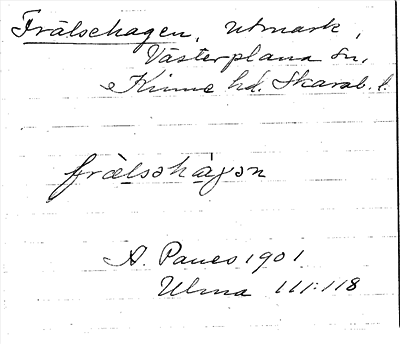 Frälsehagen, utmark,
Västerplana sn,
Kinne hd. Skarab. l.
frälsəhàgən
A. Paues 1901
Ulma 111:118